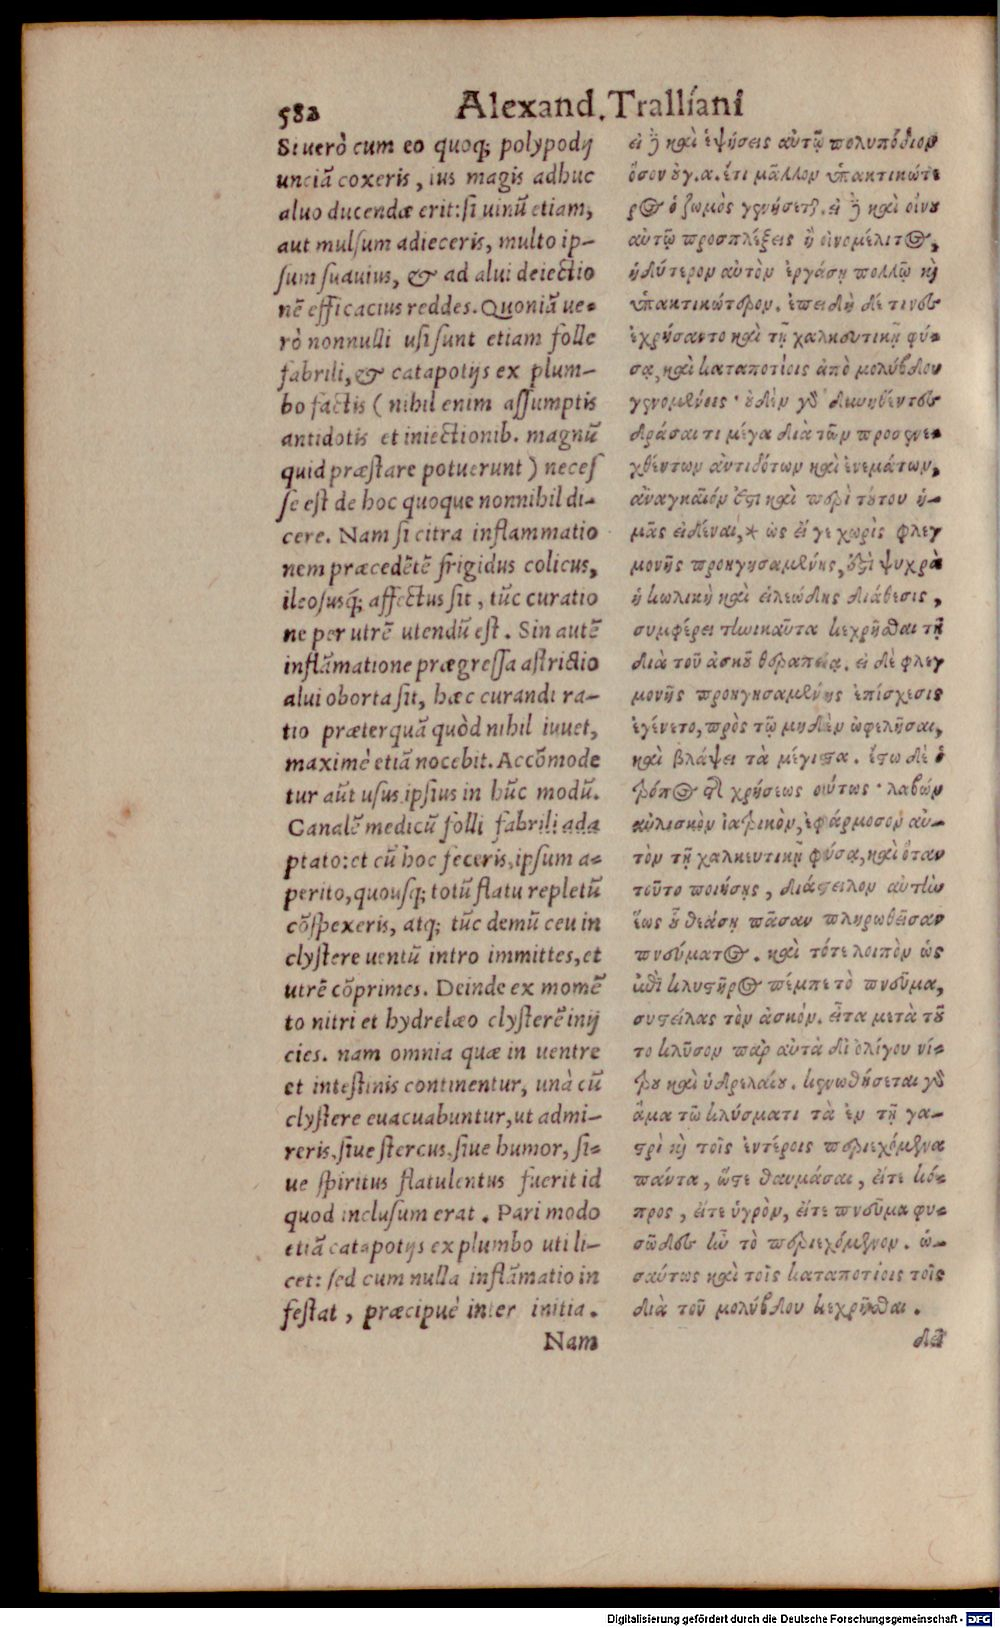 582 Alexand. Tralliani
Si uerò cum eo quoq; polypodij
unciã coxeris, ius magis adhuc
aluo ducendæ erit: si uinũ etiam,
aut mulsum adieceris, multo ip-
sum suauius, & ad alui deiectio
nẽ efficacius reddes. Quoniã ue-
rò nonnulli usi sunt etiam folle
fabrili, & catapotijs ex plum-
bo factis ( nihil enim assumptis
antidotis et iniectionib. magnũ
quid præstare potuerunt ) neces
se est de hoc quoque nonnihil di-
cere. Nam si citra inflammatio
nem præcedẽtẽ frigidus colicus,
ileosusq́; affectus sit, tũc curatio
ne per utrẽ utendũ est. Sin autẽ
inflãmatione prægressa astrictio
alui oborta sit, hæc curandi ra-
tio præterquã quòd nihil iuuet,
maximè etiã nocebit. Accõmode
tur aũt usus ipsius in hũc modũ.
Canalẽ medicũ folli fabrili ada
ptato: et cũ hoc feceris, ipsum a-
perito, quousq; totũ flatu repletũ
cõspexeris, atq; tũc demũ ceu in
clystere uentũ intro immittes, et
utrẽ cõprimes. Deinde ex momẽ
to nitri et hydrelæo clysterẽ inij
cies. nam omnia quæ in uentre
et intestinis continentur, unà cũ
clystere euacuabuntur, ut admi-
reris, siue stercus, siue humor, si-
ue spiritus flatulentus fuerit id
quod inclusum erat. Pari modo
etiã catapotijs ex plumbo uti li-
cet: sed cum nulla inflãmatio in
festat, præcipuè inter initia.
Nam
εἰ δὲ καὶ ἑψήσεις αὐτῷ πολυπόδιον
ὅσον οὐγ. α. ἔτι μᾶλλον ὑπακτικώτε
ρος ὁ ζωμὸς γενήσεται. εἰ δὲ καὶ οἴνου
αὐτῷ προσπλέξεις ἢ οἰνομέλιτος,
ἡδύτερον αὐτὸν ἐργάσῃ πολλῷ καὶ
ὑπακτικώτερον. ἐπειδὴ δέ τινες
ἐχρήσαντο καὶ τῇ χαλκευτικῇ φύ-
σᾳ, καὶ καταποτίοις ἀπὸ μολύβδου
γενομένοις· οὐδὲν γὰρ διεκηθέντες
δρᾶσαι τι μέγα διὰ τῶν προσενε-
χθέντων ἀντιδότων καὶ ἐνεμάτων,
ἀναγκαῖόν ἐστι καὶ περὶ τούτου ἡ-
μᾶς εἰδέναι,* ὡς εἴ γε χωρὶς φλεγ
μονῆς προηγησαμένης, ἐστὶ ψυχρὰ
ἡ κωλικὴ καὶ εἰλεώδης διάθεσις,
συμφέρει τηνικαῦτα κεχρῆσθαι τῇ
διὰ τοῦ ἀσκοῦ θεραπείᾳ. εἰ δὲ φλεγ
μονῆς προηγησαμένης ἐπίσχεσις
ἐγένετο, πρὸς τῷ μηδὲν ὠφελῆσαι,
καὶ βλάψει τὰ μέγιστα. ἔστω δὲ ὁ
τρόπος τῆς χρήσεως οὕτως· λαβὼν
αὐλισκὸν ἰατρικὸν, ἐφάρμοσον αὐ-
τὸν τῇ χαλκευτικῇ φύσᾳ, καὶ ὅταν
τοῦτο ποιήσῃς, διάστειλον αὐτὴν
ἕως οὗ θεάσῃ πᾶσαν πληρωθεῖσαν
πνεύματος. καὶ τότε λοιπὸν ὡς
ἐπὶ κλυστῆρος πέμπε τὸ πνεῦμα,
συστείλας τὸν ἀσκόν. εἶτα μετὰ τοῦ
το κλῦσον παρ αὐτὰ δι ὀλίγου νί-
τρου καὶ ὑδρελαίου. κενωθήσεται γὰρ
ἅμα τῷ κλύσματι τὰ ἐν τῇ γα-
στρὶ καὶ τοῖς ἐντέροις περιεχόμενα
πάντα, ὥστε θαυμάσαι, εἴτε κό-
προς, εἴτε ὑγρὸν, εἴτε πνεῦμα φυ-
σῶδες ἦν τὸ περιεχόμενον. ὡ-
σαύτως καὶ τοῖς καταποτίοις τοῖς
διὰ τοῦ μολύβδου κεχρῆσθαι.
δεῖ
Digitalisierung gefördert durch die Deutsche Forschungsgemeinschaft - DFG